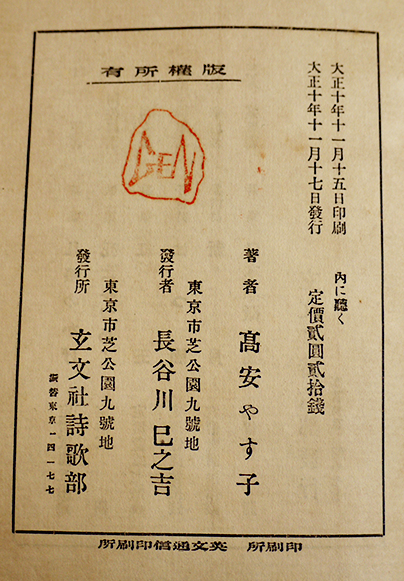 大正十年十一月十五日印刷
大正十年十一月十七日發行
內に聽く
定價貳圓貳拾錢
版權所有
GEN
著者 髙安やす子
東京市芝公園九號地
發行者 長谷川巳之吉
東京市芝公園九號地
發行所 玄文社詩歌部
振替東京一四一七七
印刷所 英文通信印刷所